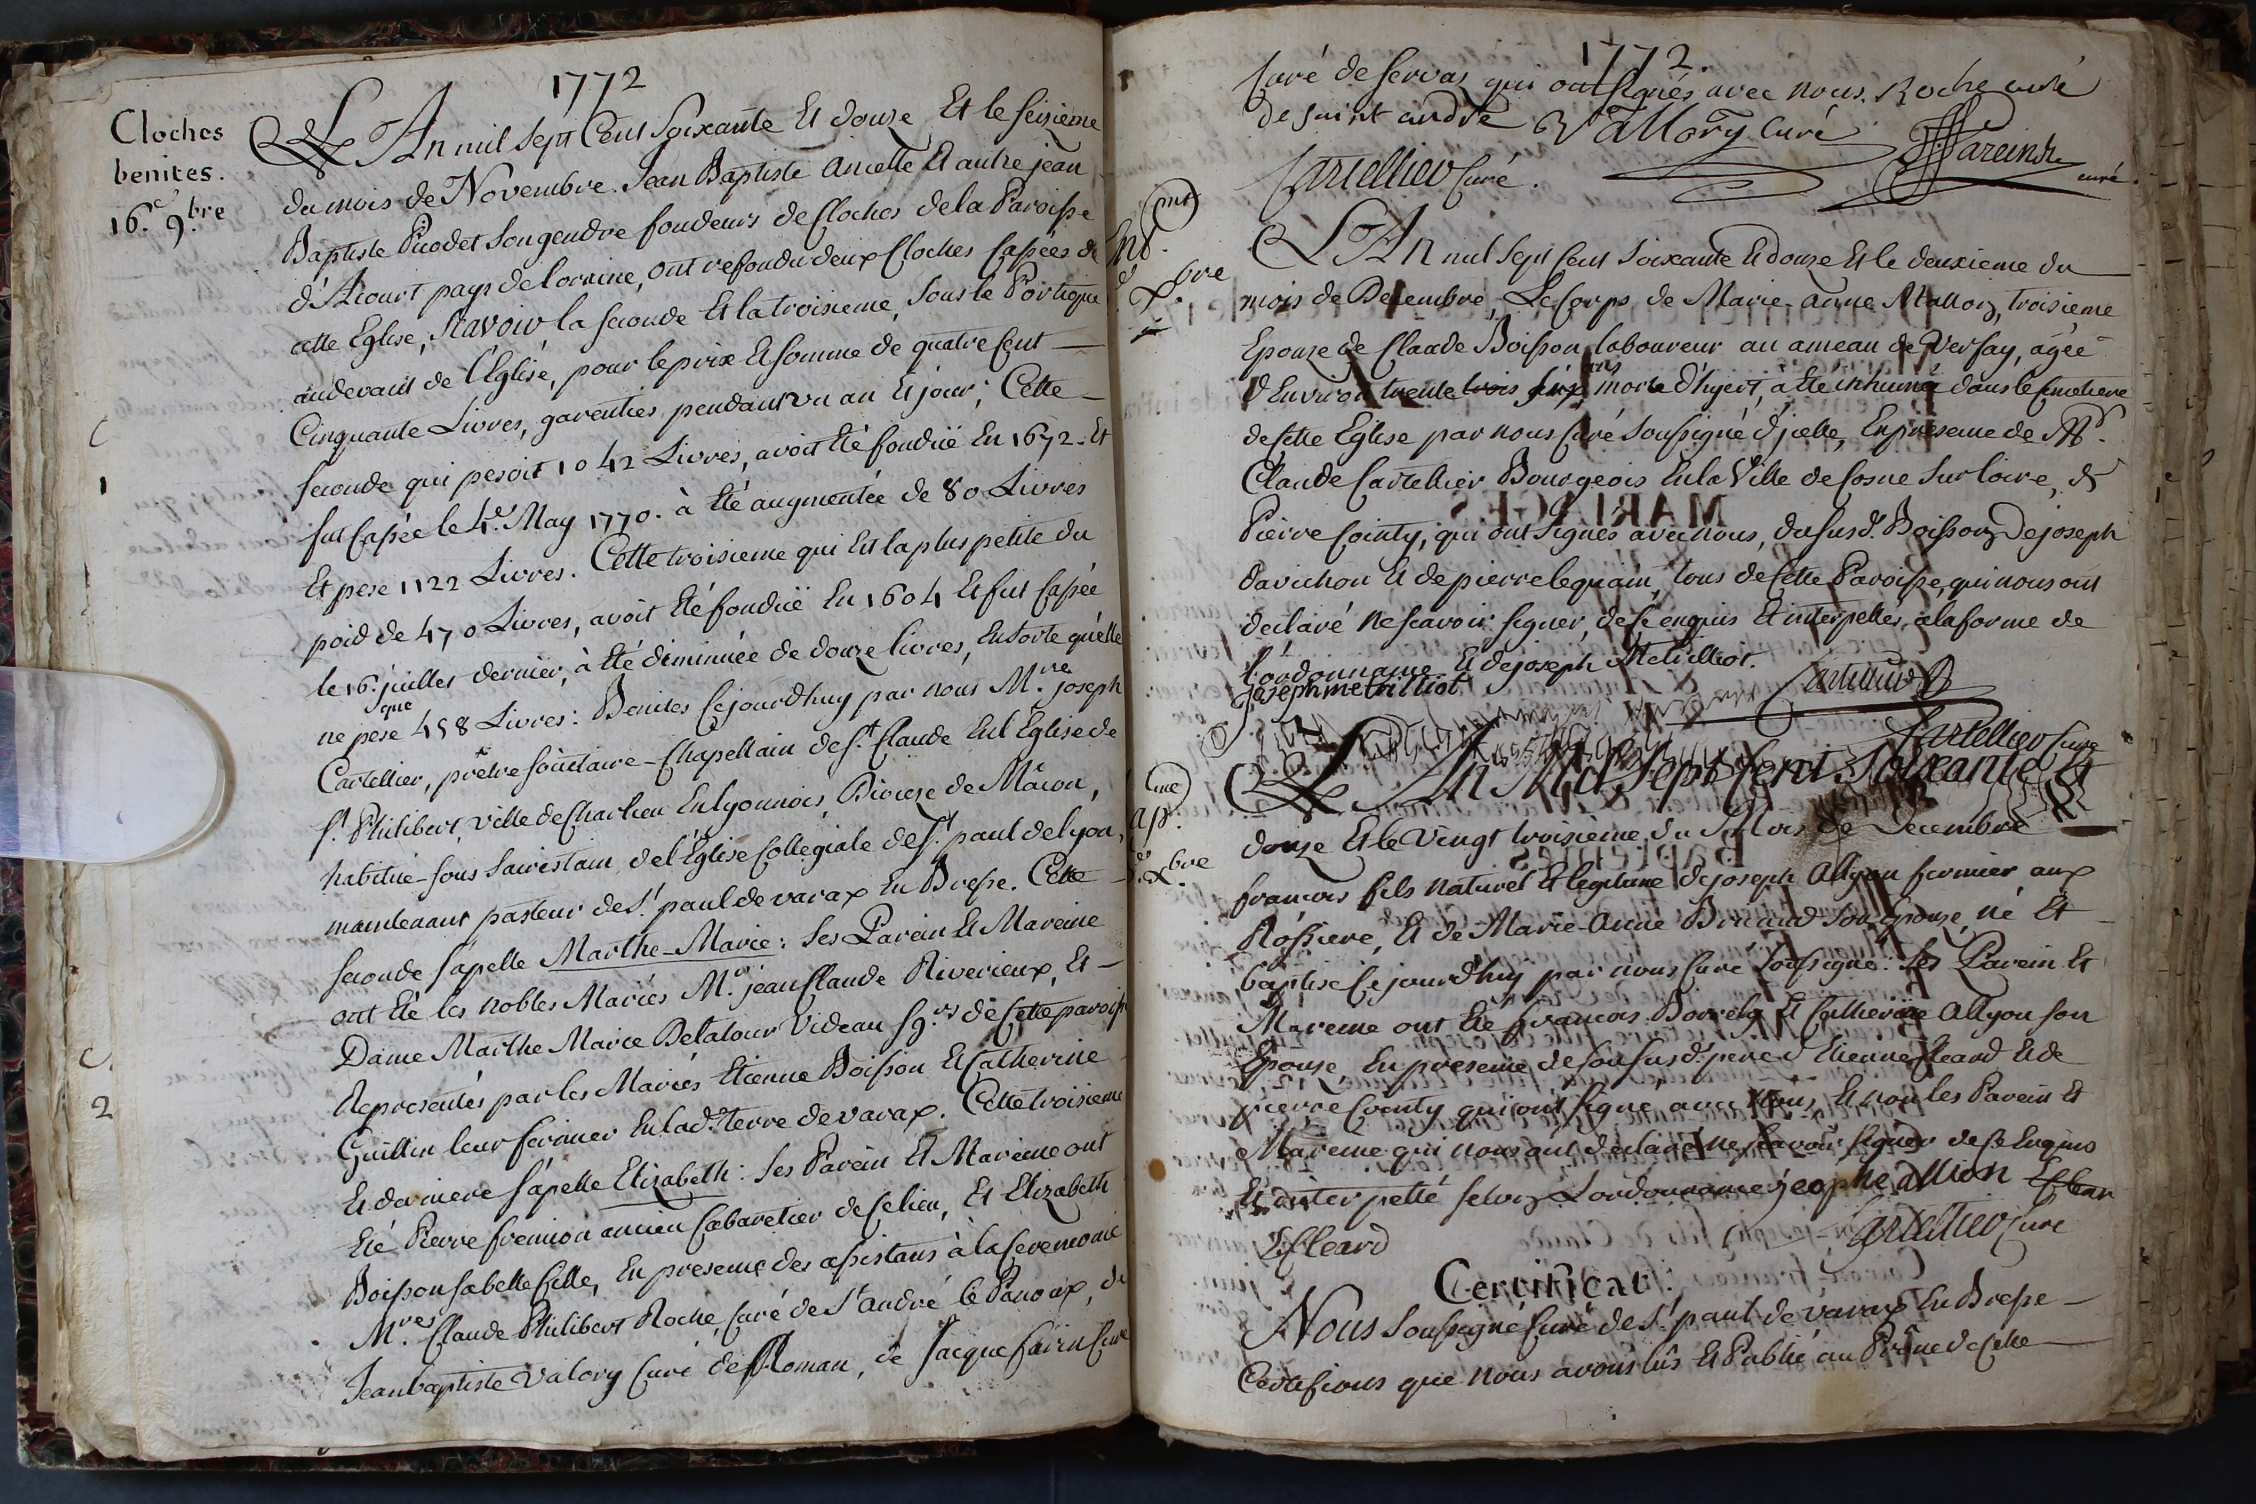 1772
Cloches
benites.
16.e 9.bre
L'An mil sept Cent Soixante Et douze Et le seizieme
du mois de Novembre. Jean Baptiste ancelle Et autre jean
Baptiste Puodet son gendre fondeurs de Cloches de la Paroisse
d'Aiourt pays de lorraine, ont refondu deux Cloches Cassées de
cette Eglise, Scavoir la seconde Et la troisieme, sous le Portique
audevant de l'Eglise, pour le prix Et somme de quatre Cent
Cinquante Livres, garenties pendant un an Et jour; Cette
seconde qui pesoit 1042 Livres, avoit Eté fonduë En 1672. Et
fut Cassée le 4.e May 1770. à Eté augmentée de 80 Livres
Et pese 1122 Livres. Cette troisieme qui Est la plus petite du
poid de 470 Livres, avoit Eté fonduë En 1604 Et fut Cassée
le 16.e juillet dernier, à Eté diminuée de douze livres, Ensorte qu'elle
ne pese que 458 Livres: Benites Cejourdhuy par nous M.re joseph
Cartellier, prêtre sociétaire-Chapellain de S.t Claude En l'Église de
S.t Philibert, ville de Charlieu En lyonnois Diocese de Mâcon,
habitué-sous sacristain de l'Église Collégiale de S.t paul de lyon,
maintenant pasteur de S.t paul de varax En Bresse. Cette
seconde s'apelle Marthe-Marie: ses Parein Et Mareine
ont Eté les nobles Mariés M.r jean Claude Riverieux, Et
Dame Marthe Marie Delatour Videau sg.rs de Cette paroisse
Representés par les Mariés Etienne Boisson Et Catherine
Guillin leur fermier En lad.e terre de varax. Cette troisieme
Et derniere s'apelle Elizabeth: ses Parein Et Mareine ont
Eté Pierre fremion ancien Cabaretier de Ce lieu, Et Elizabeth
Boisson sa belle fille, En presence des assistans à la Ceremonie
M.res Claude Philibert Roche, Curé de S.t andré le Panoux, de
Jean baptiste valory Curé de Roman, de Jacque farein Curé
1772.
Curé de servas qui ont signés avec nous. Roche curé
de saint andré Vallory Curé Fareins
Cartellier Curé. curé.
L'An mil sept Cent soixante Et douze Et le deuxieme du
mois de Decembre, Le Corps de Marie-anne Mallon, troisieme
Epouze de Claude Boisson laboureur au ameau de Versay, agée
d'Environ trente trois six ans morte d'hyert, à Eté inhumé dans le Cimetiere
de Cette Eglise par nous Curé soussigné d'jcelle, En presence de
Claude Cartellier Bourgeois En la Ville de Cosne sur loire, &
Pierre Cointy, qui ont signés avec nous, du susd. Boisson, de joseph
davichon Et de pierre lequain, tous de Cette Paroisse, qui nous ont
declaré ne scavoir signer, de Ce enquis Et interpellés, a la forme de
l'ordonnance Et de joseph Metrilliot.
joseph metrilliot Cartellier
Cartellier Curé
L'An Mil Sept Cent Soixante Et
douze Et le Vingt troisieme du Mois de Decembre
francois fils naturel Et legitime de joseph Allyon fermier aux
Rossiere, Et de Marie-Anne Bricaud son Epouze, né Et
baptisé Cejourdhuy par nous Curé soussigné: ses Parein Et
Mareine ont Eté francois Borrely Et Catherine Allyon son
Epouse, En presence de son susd.t pere d'Etienne Cleard Et de
pierre Cointy qui ont signé avec Nous, Et non les Parein Et
Mareine qui nous ont declaré ne scavoir signer de Ce Enquis
Et interpellé selon Lordonnance jeophe allion
E Cleard Cartellier Curé
Certificat.
Nous soussigné Curé de S.t paul de varax En Bresse
Certifions que nous avons lûs Et Publié au Prône de Cette